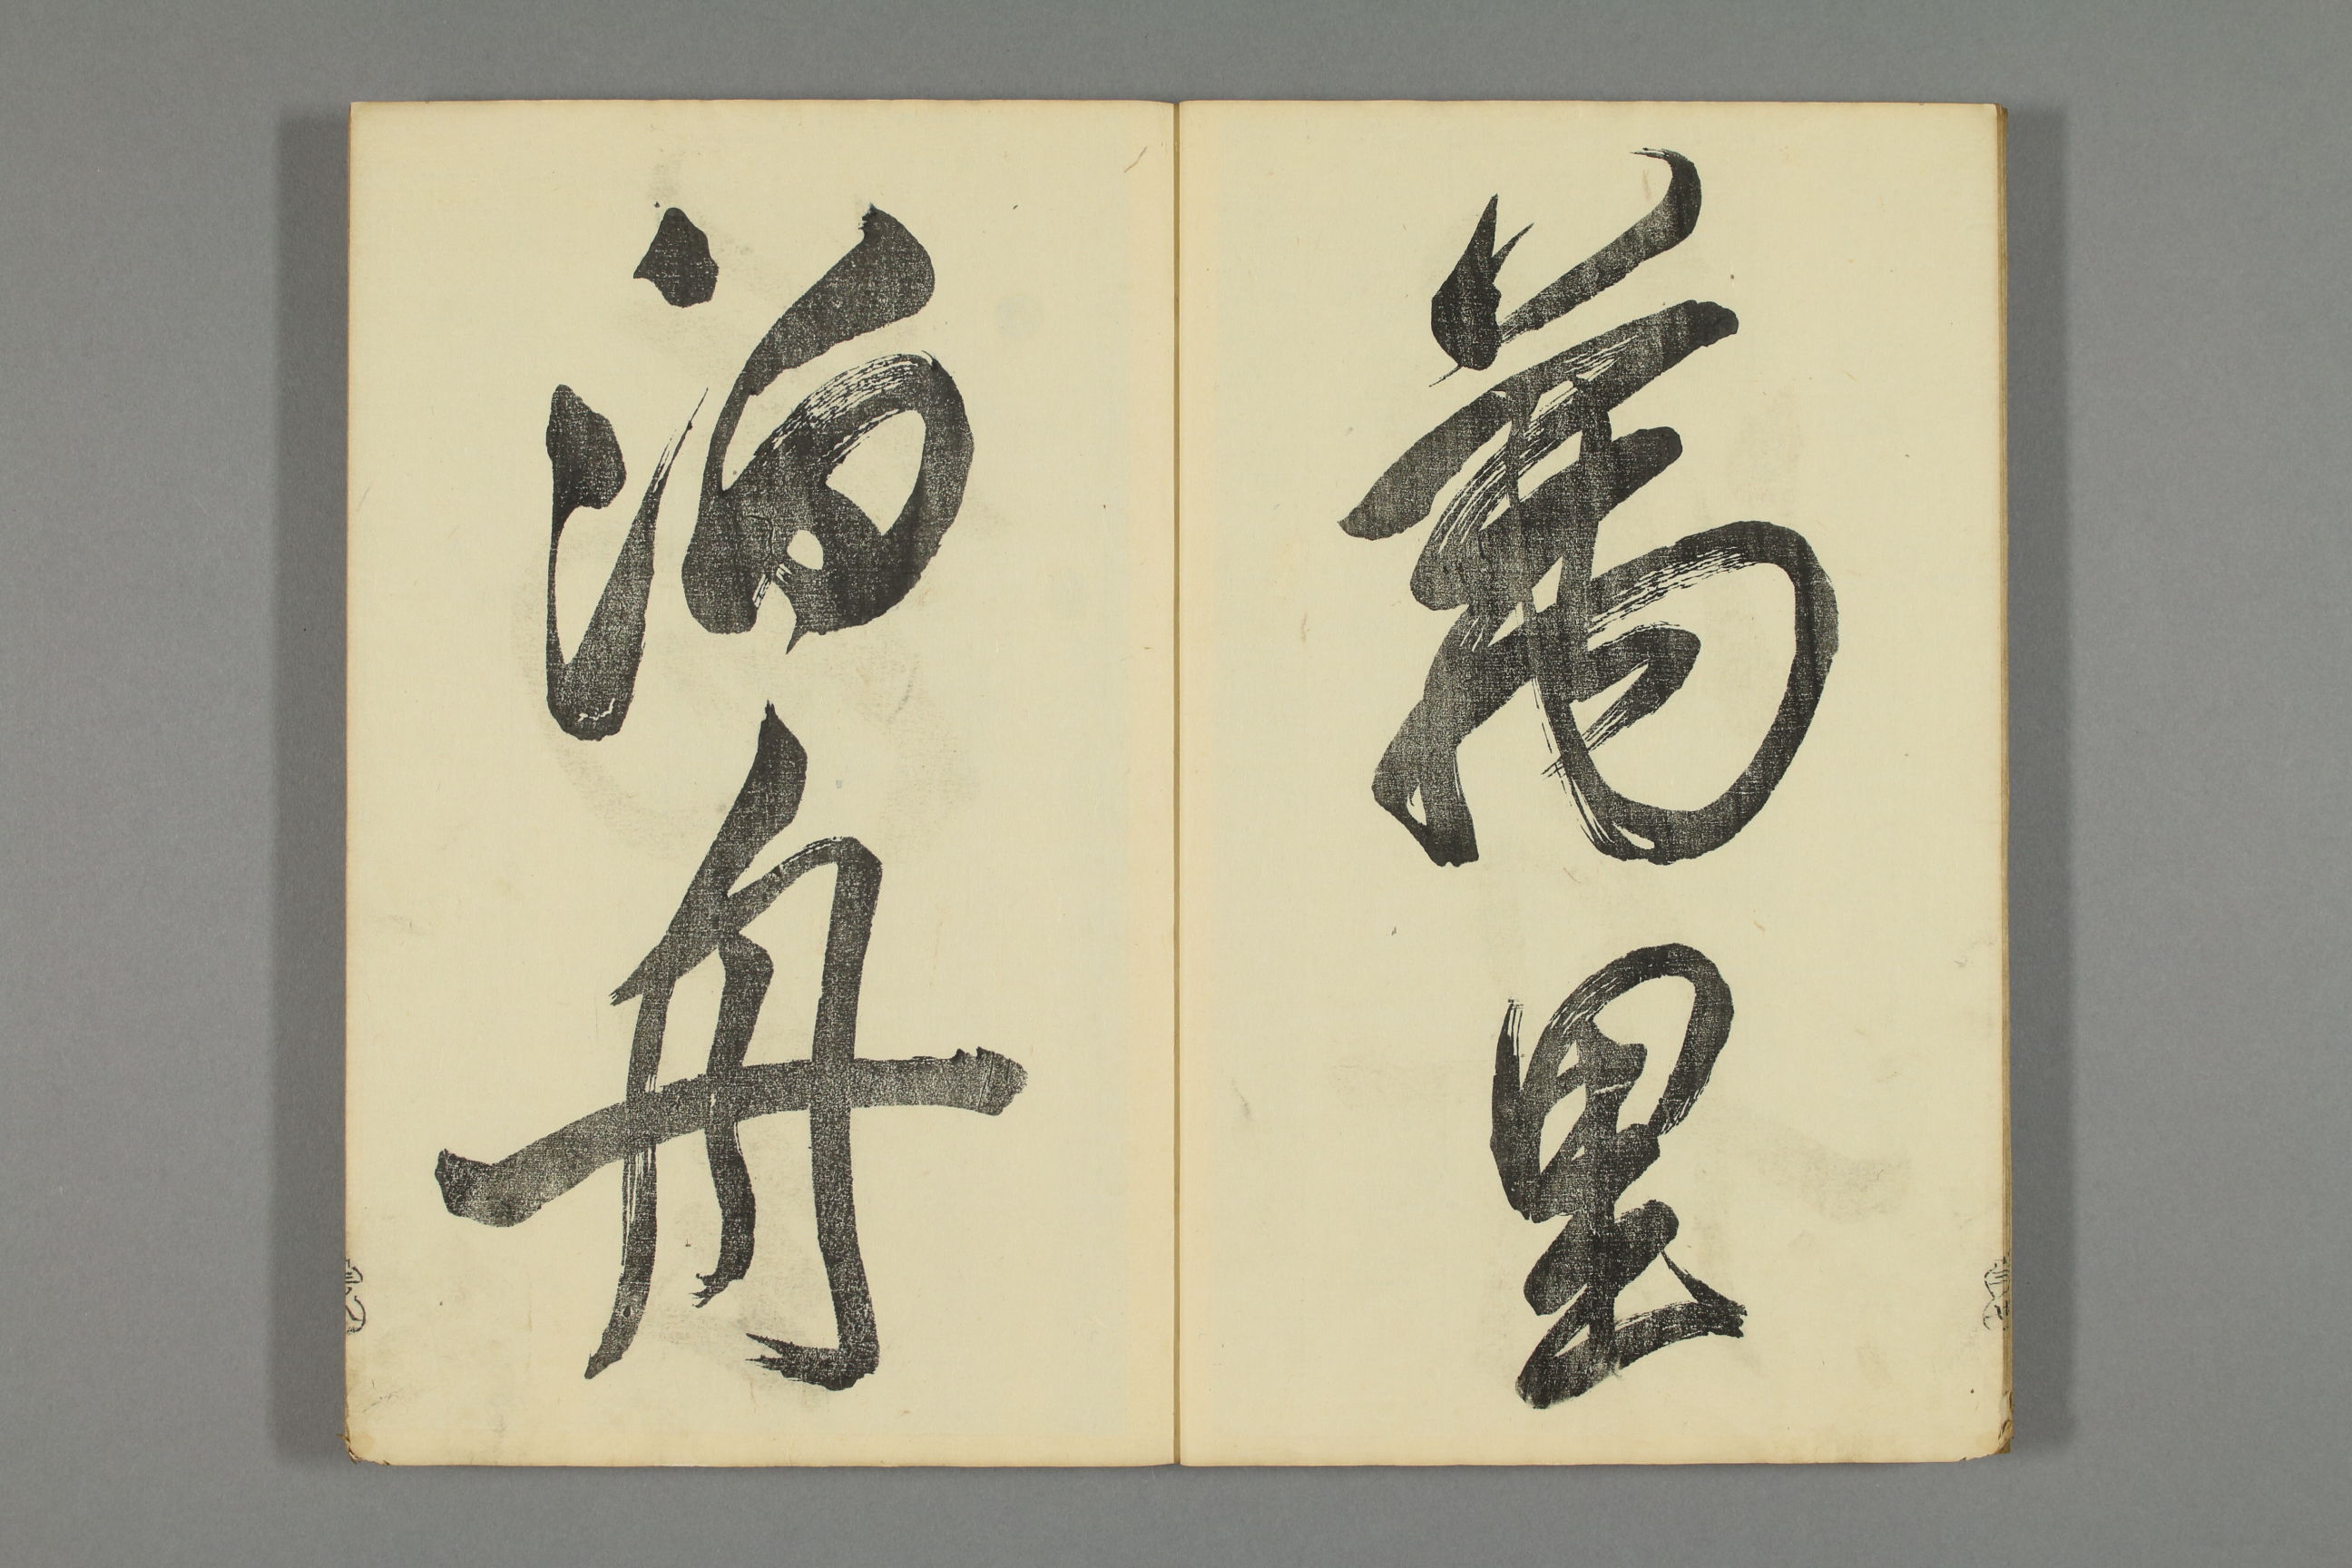 萬里
泊舟